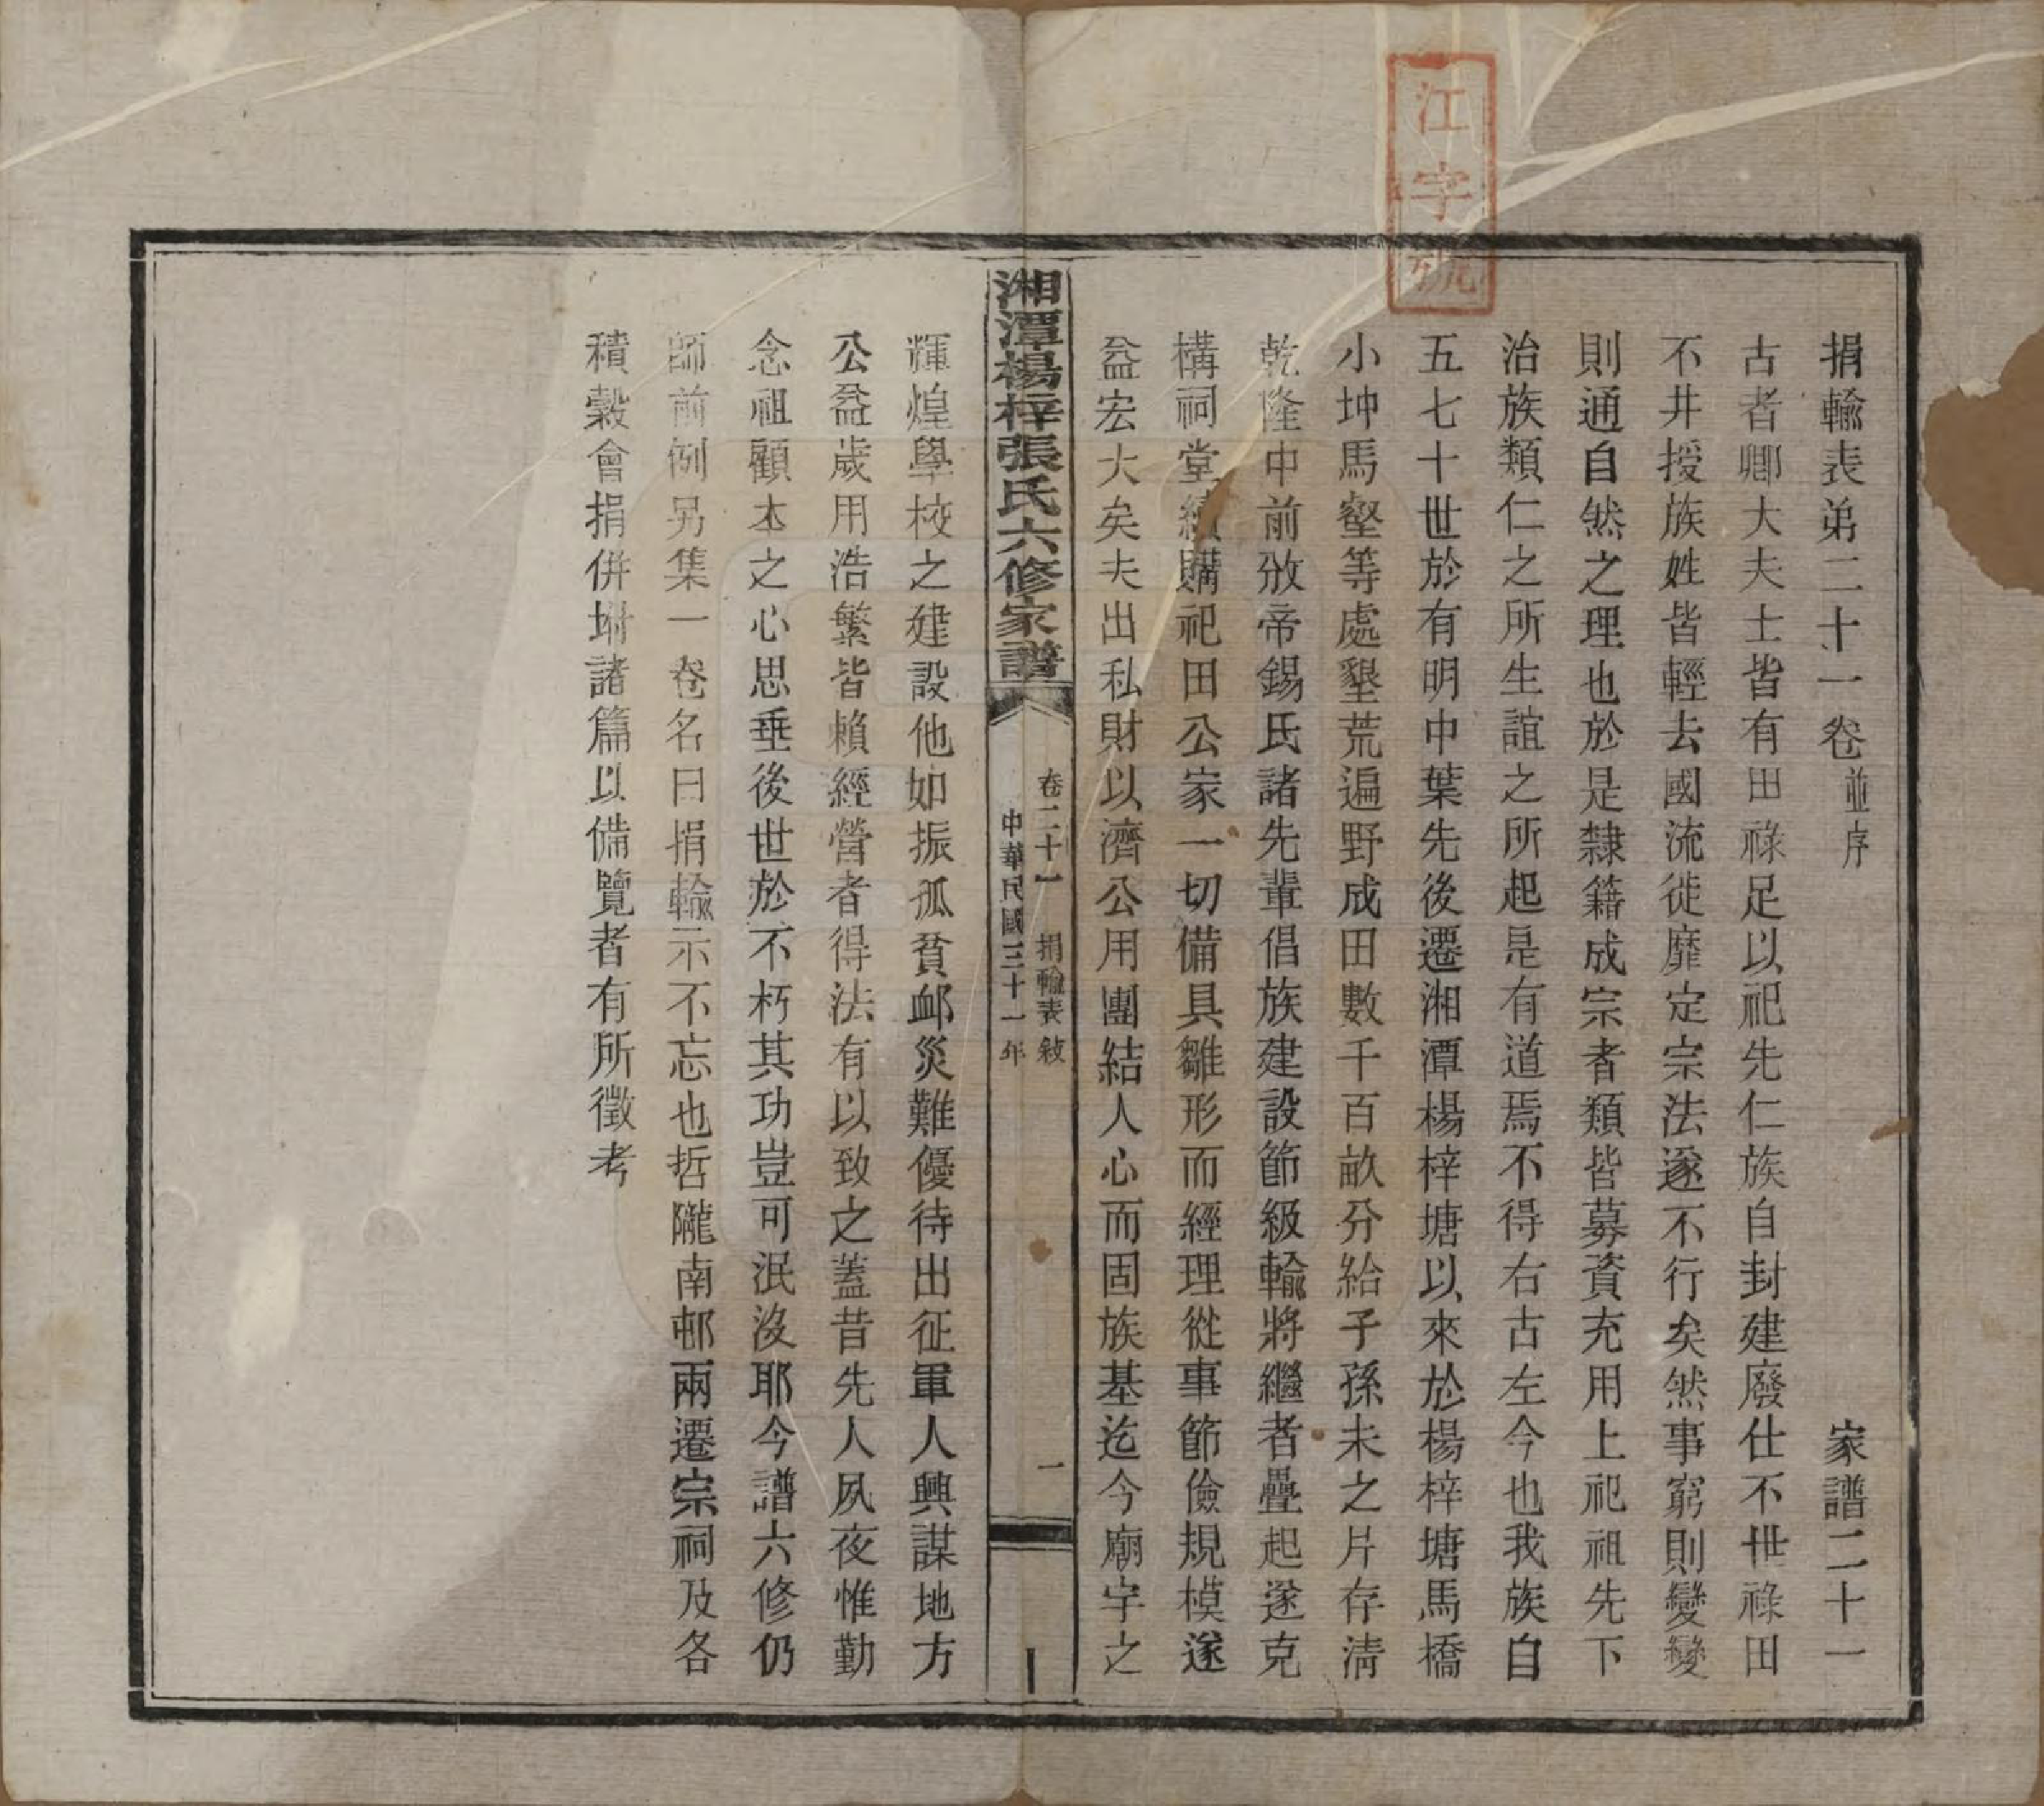 江字號
捐輸表弟二十一卷 並序 家譜二十一
古者卿大夫士皆有田祿足以祀先仁族自封建廢仕不世祿田
不井授族姓皆輕去國流徙靡定宗法遂不行矣然事窮則變變
則通自然之理也於是隸籍成宗者類皆募資充用上祀祖先下
治族類仁之所生誼之所起是有道焉不得右古左今也我族自
五七十世於有明中葉先後遷湘潭楊梓塘以來於楊梓塘馬橋
小坤馬壑等處墾荒遍野成田數千百畝分給子孫未之片存淸
乾隆中前攽帝錫氏諸先輩倡族建設節級輸將繼者疊起遂克
構祠堂續購祀田公家一切備具雛形而經理從事節儉規模遂
益宏大矣夫出私財以濟公用團結人心而固族基迄今廟宇之
湘潭楊梓張氏六修家譜
卷二十一 捐輸表敘 一
中華民國三十一年
輝煌學校之建設他如振孤貧衈災難優待出征軍人興謀地方
公益歲用浩繁皆賴經營者得法有以致之蓋昔先人夙夜惟勤
念祖顧本之心思垂後世於不朽其功豈可泯沒耶今譜六修仍
師前例另集一卷名曰捐輸示不忘也哲隴南邨兩遷宗祠及各
積穀會捐併坿諸篇以備覽者有所徵考